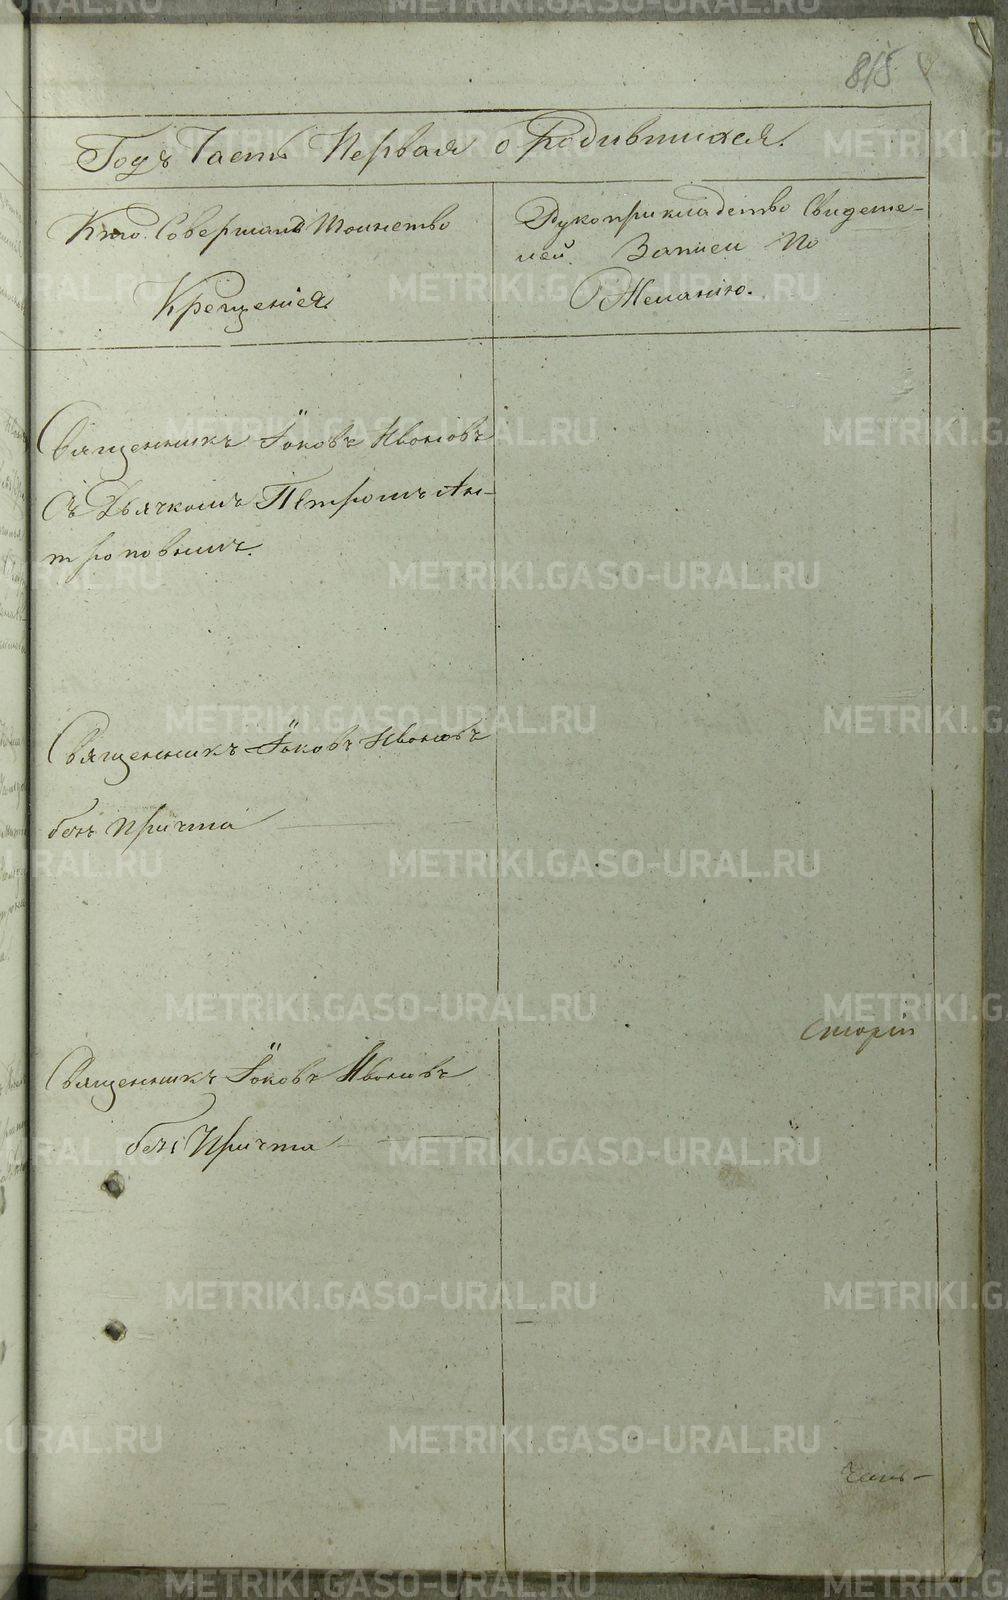 815
Годъ Часть Первая о Родившихся.
Кто Совершалъ Таинство
Крещенія
Рукоприкладство Свидете-
лей Записи По
Желанію.
Священникъ Іаковъ Ивановъ
Съ Дьячкомъ Петромъ Ан-
троповымъ.
Священникъ Іаковъ Ивановъ
безъ Причта
Священникъ Іаковъ Ивановъ
безъ Причта
METRIKI.GASO-URAL.RU